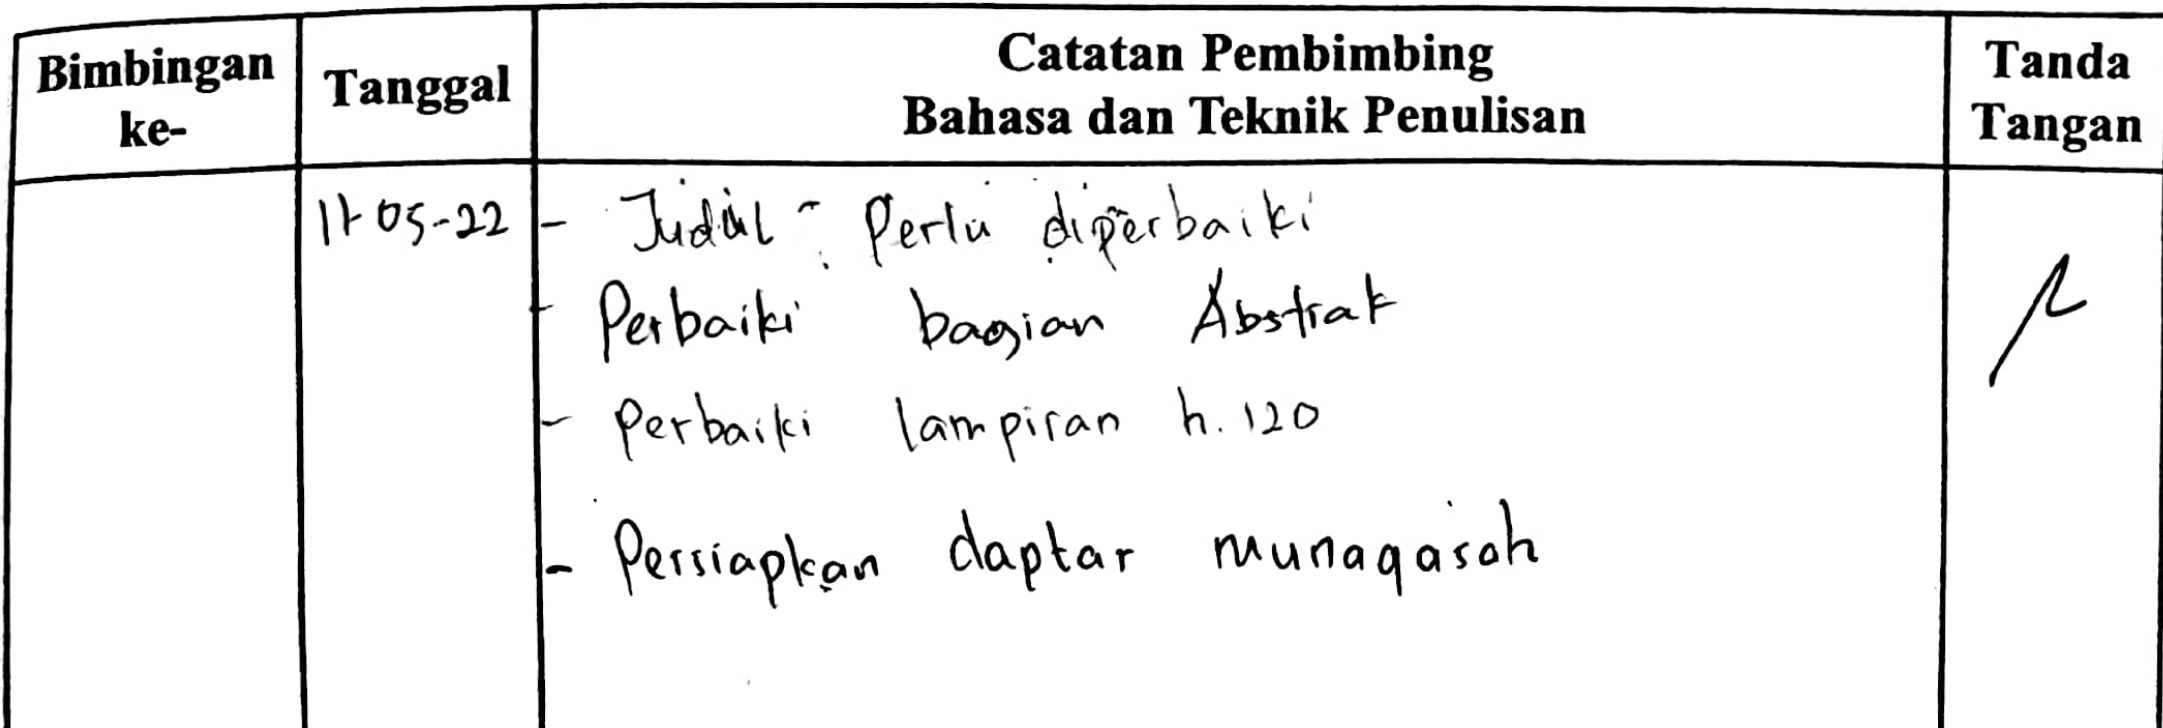 Bimbingan ke-
Tanggal
Catatan Pembimbing
Bahasa dan Teknik Penulisan
Tanda Tangan
11-05-22
- Judul : Perlu diperbaiki
- Perbaiki bagian Abstrak
- Perbaiki lampiran h. 120
- Persiapkan daptar munaqasah